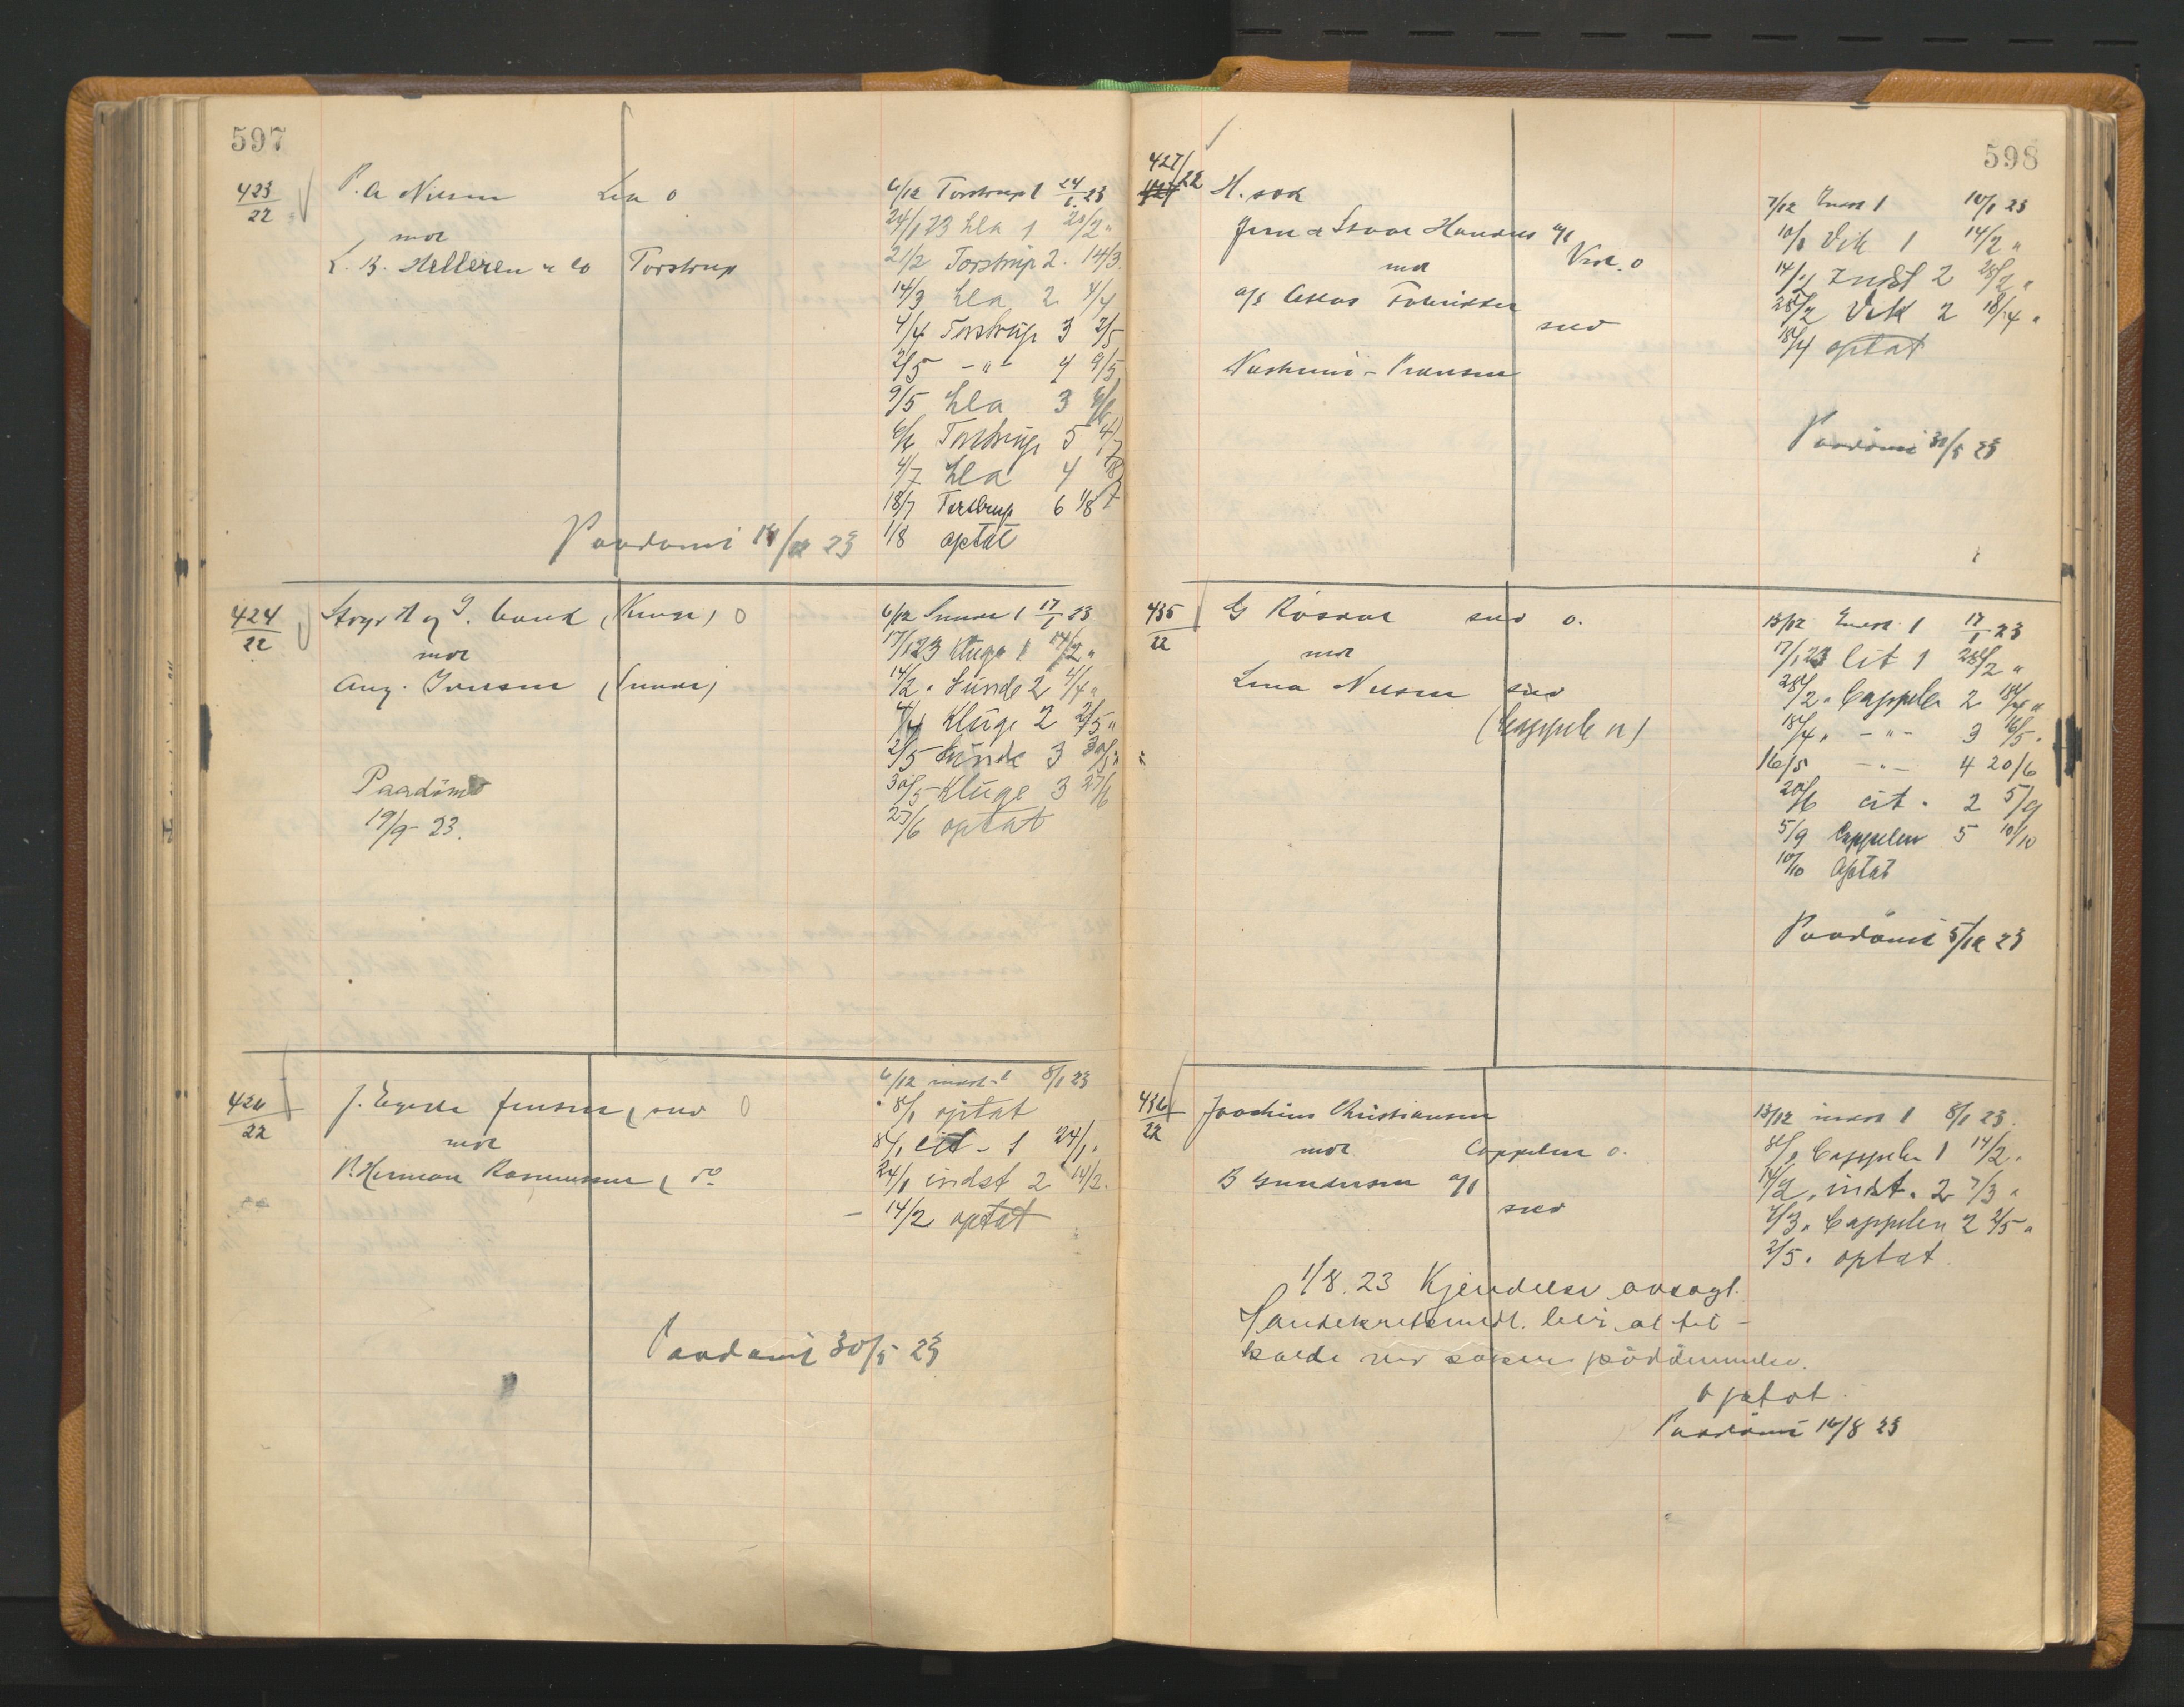 597
423/22 P. A Nilsen Lea 0
mot
L. B. Helleren & Co Torstrup
6/12 Torstrup 1 24/1 23
24/1 23 Lea 1 21/2 "
21/2 Torstrup 2. 14/3.
14/3 Lea 2 4/4
4/4 Torstrup 3 2/5
2/5 -"- 4 9/5
9/5 Lea 3 6/6
6/6 Torstrup 5 4/7
4/7 Lea 4 18/7
18/7 Torstrup 6 1/8
1/8 optat
Paadömt 23
424/22 (Kluge) 0
mot
Aug. Iversen (Sunde)
6/12 Sunde 1 17/1 23
17/1 23 Kluge 1 14/2 "
14/2 " Sunde 2 4/4 "
4/4 Kluge 2 2/5 "
2/5 Sunde 3 30/5 "
30/5 Kluge 3 27/6
27/6 optat
Paadömt
19/9- 23.
426/22 J. Egede Jensen, sed 0
mot
P. Herman Rasmussen ( do
6/12 indst. 1 8/1 23
8/1 optat
8/1 cit - 1 24/1 "
24/1 indst 2 14/2.
- 14/2 optat
Paadömt 30/5 23
598
427/22 H. sak
Jern & Staal Handel A/S
mot Vik. 0
A/S Atlas
sed
7/12 Indst 1 10/1 23
10/1 Vik 1 14/2 "
14/2 Indst 2 28/2 "
28/2 Vik 2 18/4 "
18/4 optat
Paadömt 30/5 23
435/22 G Rosdal sed 0.
mot
Lena Nilsen sed
(Cappelen)
13/12 Indst. 1 17/1 23
17/1 23 cit 1 28/2 "
28/2 " Cappelen 2 18/4 "
18/4 " -"- 3 16/5 "
16/5 -"- 4 20/6
20/6 cit. 2 5/9
5/9 Cappelen 5 10/10
10/10 Optat
Paadömt 5/12 23
436/22 Joachim Christiansen
mot Cappelen 0.
B Gundersen A/S
sed
13/12 indst 1 8/1 23.
8/1 Cappelen 1 14/2 "
14/2 " indst. 2 7/3 "
7/3 " Cappelen 2 2/5 "
2/5 " optat.
1/8. 23 Kjendelse avsagt.
blir at til-
kalde ved sakens pådömmelse.
Optat.
Paadömt 16/8 23